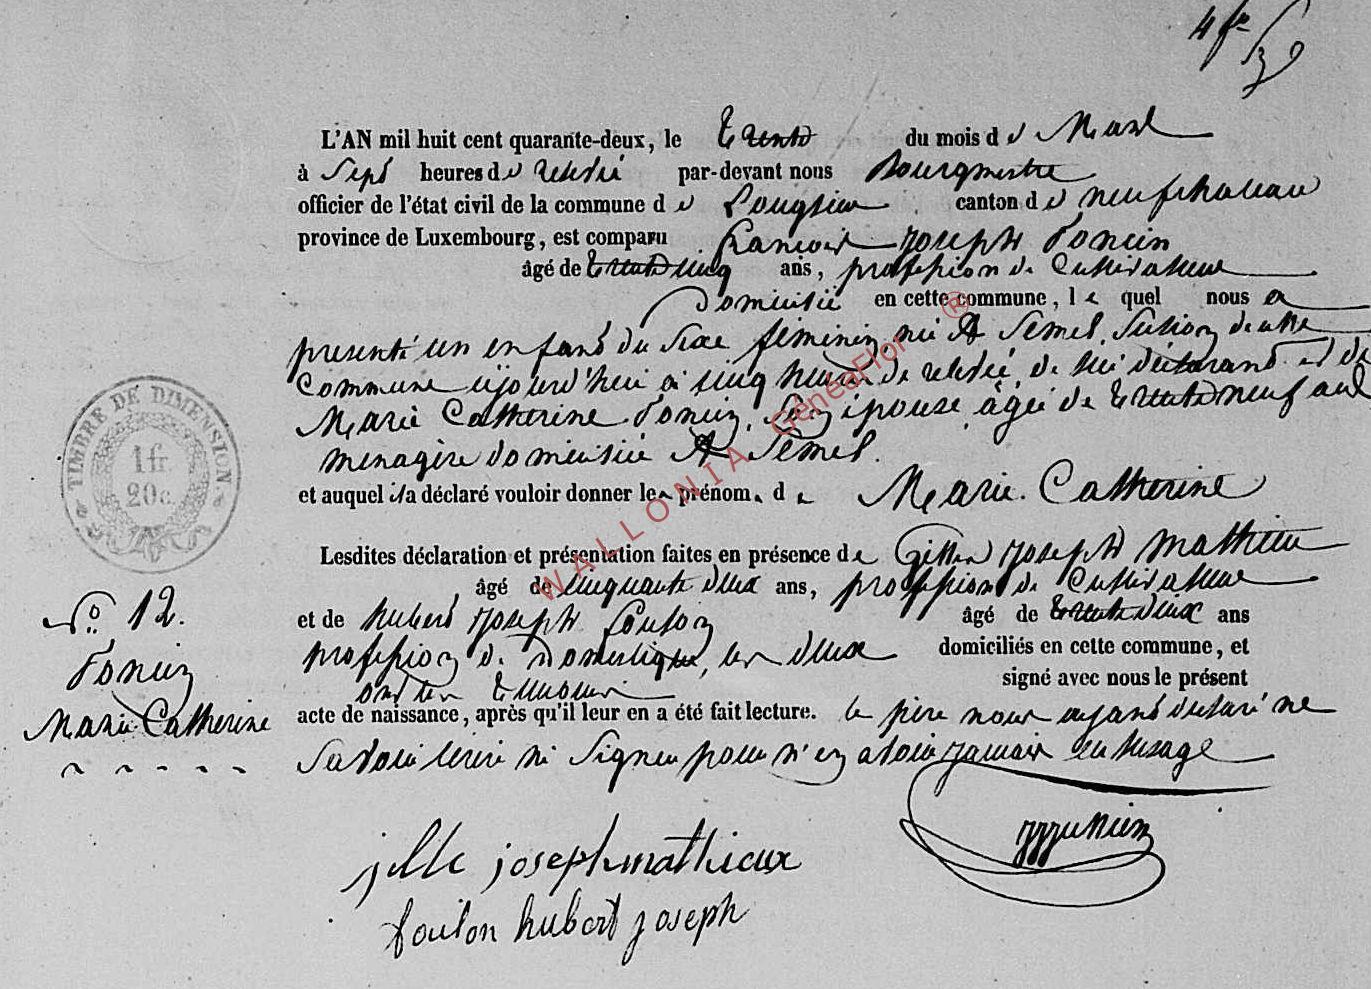 4 fe
L'AN mil huit cent quarante-deux, le trente du mois de Mars
à Sept heures de relevée par-devant nous Bourgmestre
officier de l'état civil de la commune de Longlier canton de neufchateau
province de Luxembourg, est comparu francois Joseph Poncin
âgé de trente cinq ans, profession de Cultivateur
domicilié en cette commune, le quel nous a
presenté un enfant du Sexe féminin, née A Semel, Section de cette
Commune ajourd'hui à cinq heures de relevée, de lui déclarant et de
Marie Catherine Poncin, Son épouse âgée de trente neuf ans
menagère domiciliée A Semel.
et auquel il a déclaré vouloir donner les prénoms de Marie Catherine
Lesdites déclaration et présentation faites en présence de Gille Joseph Mathieu
âgé de cinquante deux ans, profession de Cultivateur
et de hubert Joseph âgé de trente deux ans
profession de Domestique, les deux domiciliés en cette commune, et
ont les temoins signé avec nous le présent
acte de naissance, après qu'il leur en a été fait lecture. le père nous ayant déclaré ne
Savoir écrire ni Signer pour n'en avoir jamais eu usage
jille joseph mathieux
hubert joseph
TIMBRE DE DIMENSION
1 fr.
20 c.
No. 12.
Poncin
Marie Catherine
WALLONIA GénéaFlor ®